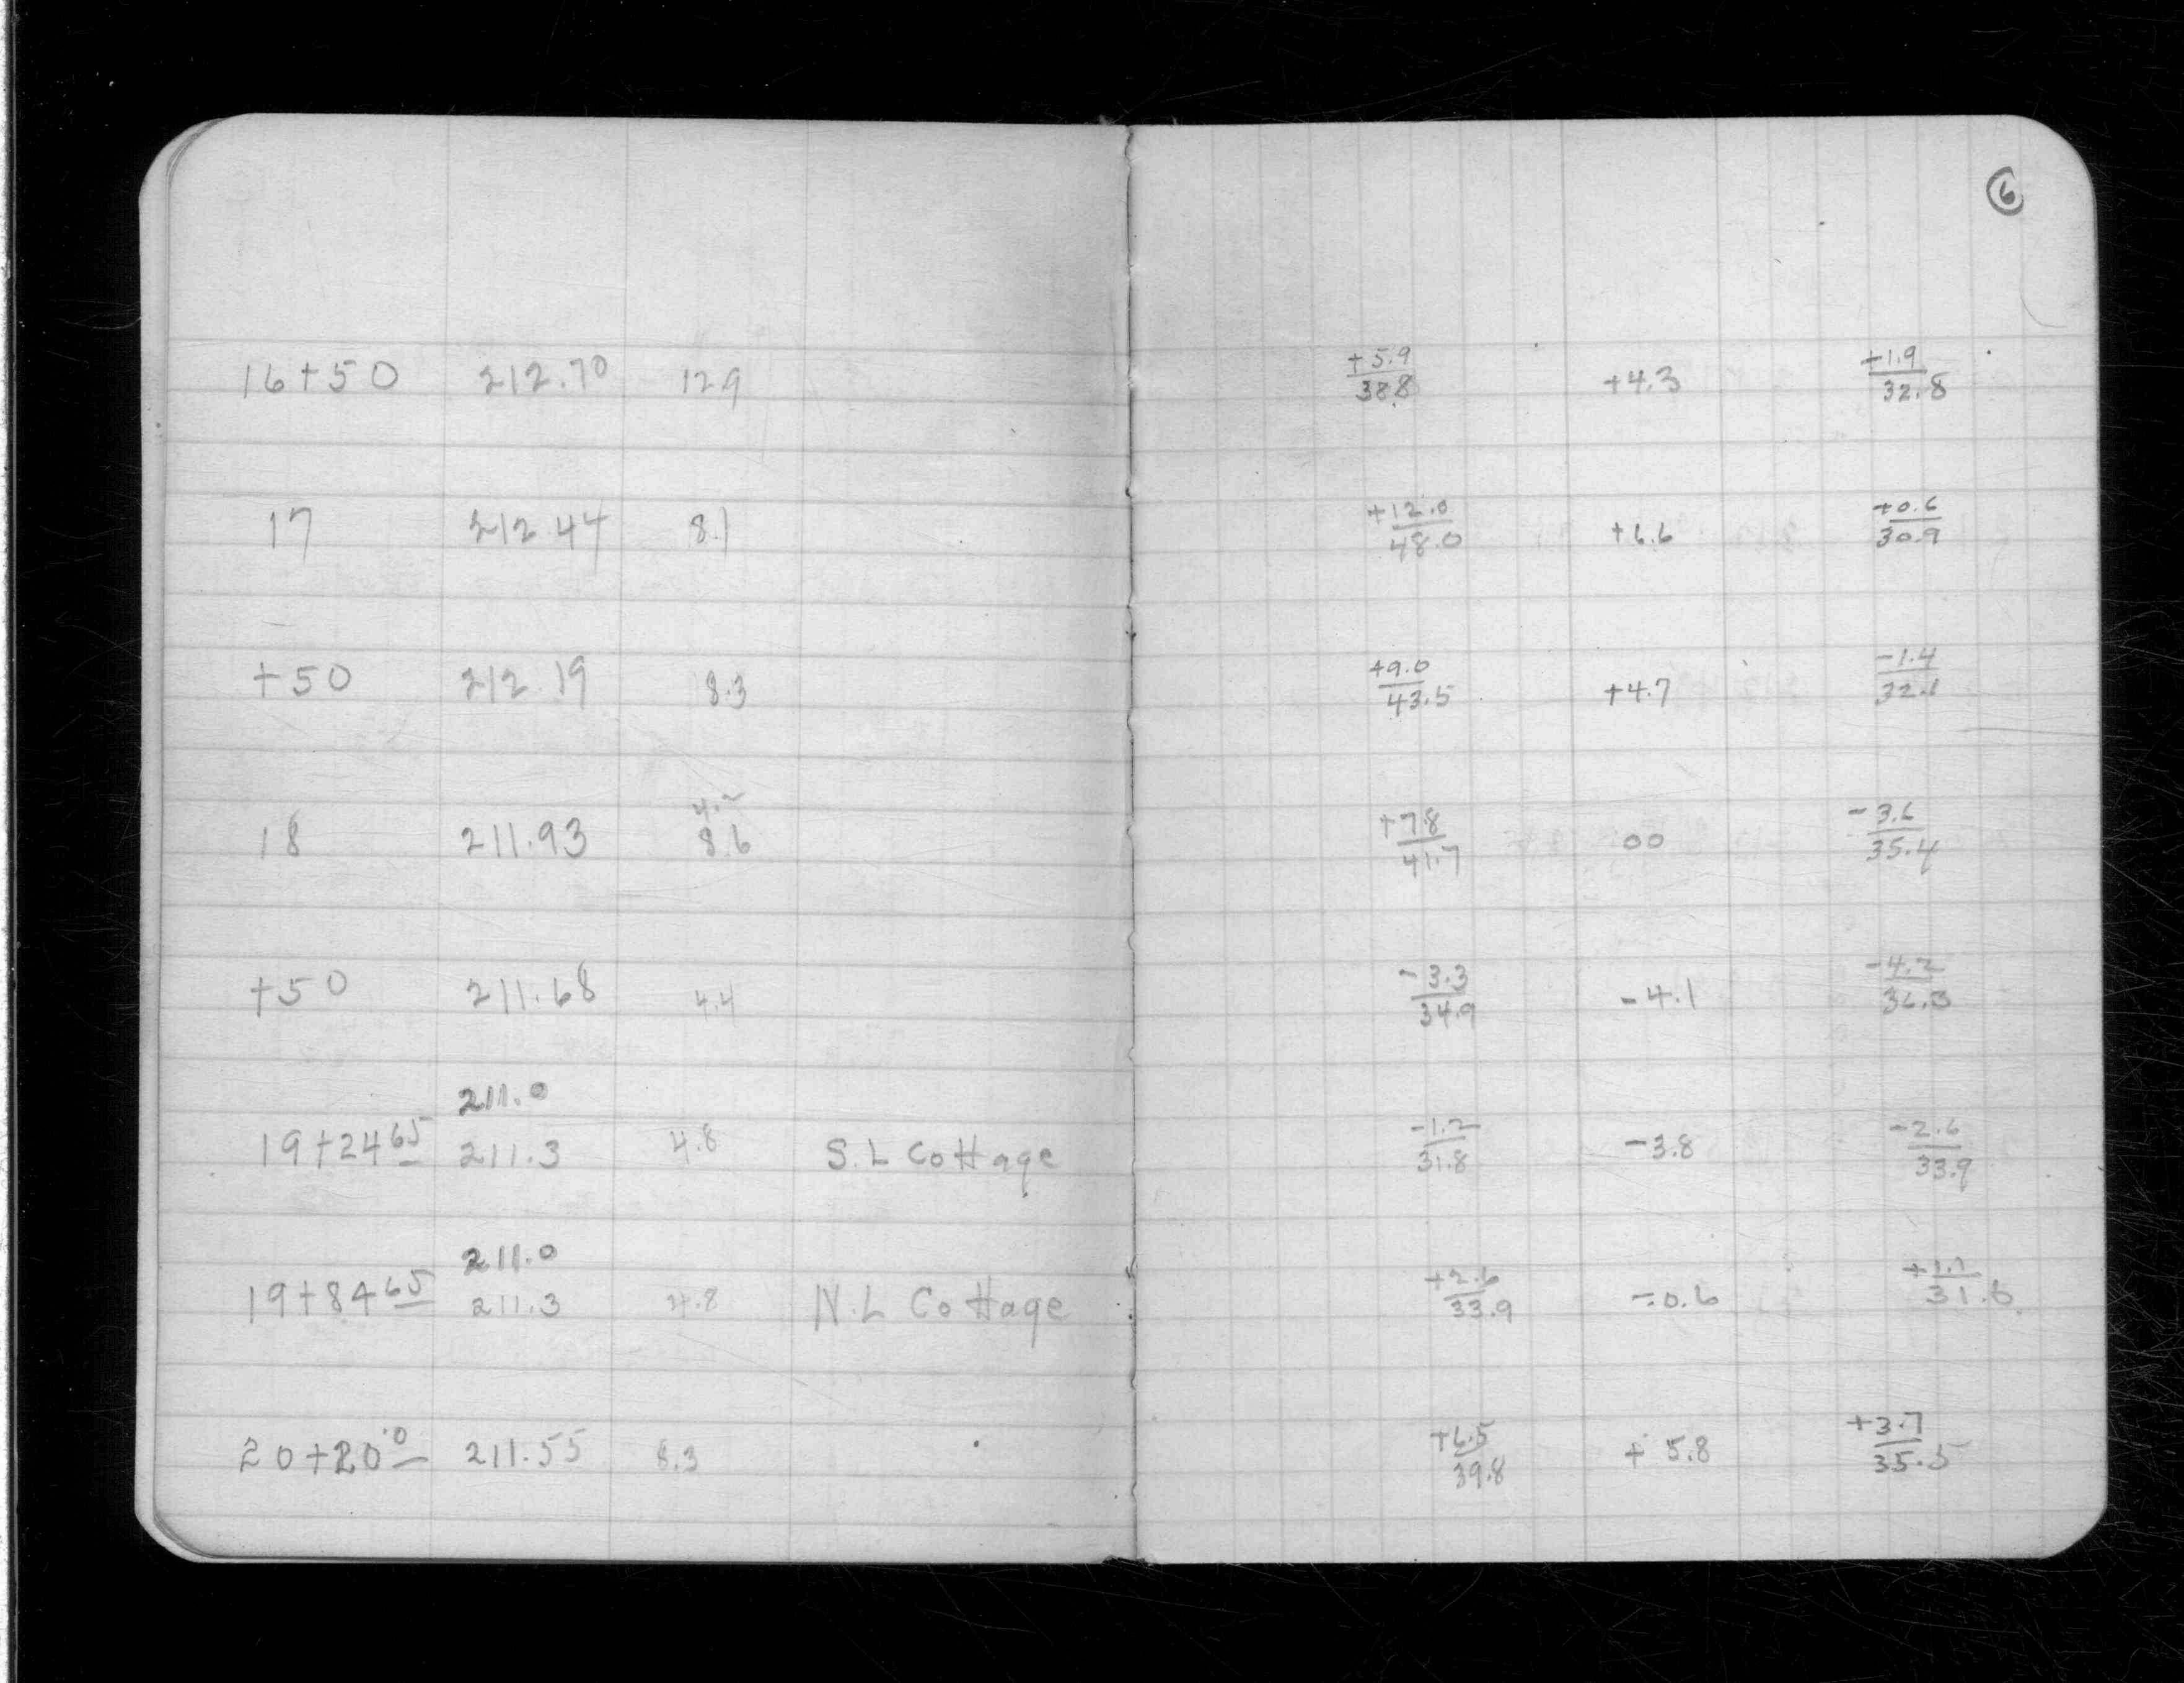 6
16+50 212.70 12.9 +5.9/38.8 +4.3 +1.9/32.8
17 212.44 8.1 +12.0/48.0 +6.6 +0.6/30.9
+50 212.19 8.3 +9.0/43.5 +4.7 -1.4/32.1
4.2
18 211.93 8.6 +7.8/41.7 00 -3.6/35.4
+50 211.68 4.4 -3.3/34.9 -4.1 -4.2/36.3
211.0
19+24 65 211.3 4.8 S.L Cottage -1.2/31.8 -3.8 -2.6/33.9
211.0
19+84 65 211.3 4.8 N.L Cottage +2.6/33.9 -0.6 31.8
20+20.0 211.55 8.3 +6.5/39.8 +5.8 +3.7/35.5